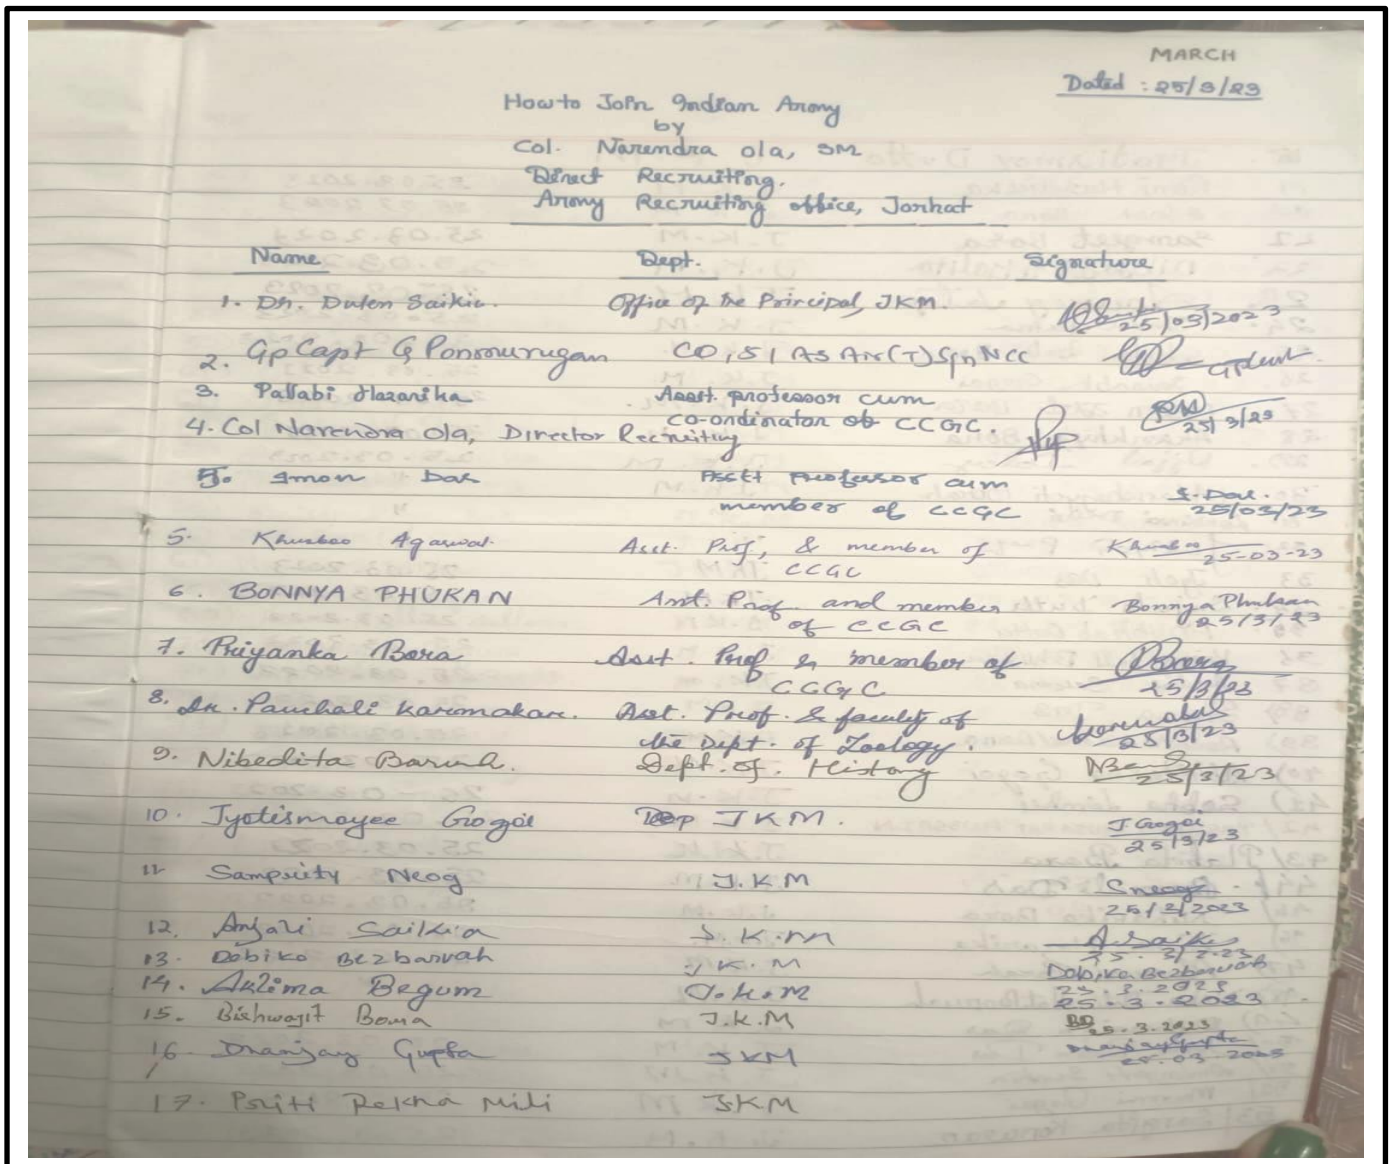 MARCH
Dated : 25/3/23
How to Join Indian Army
by
Col. Narendra Ola, SM
Direct Recruiting.
Army Recruiting office, Jorhat
Name Dept. Signature
1. Dr. Dulen Saikia. Office of the Principal, JKM. 25/03/2023
2. Gp Capt G Ponmurugan CO, 51 AS AIR (T) Sqn NCC
3. Pallabi Hazarika Asst. professor cum
co-ordinator of CCGC. 25/3/23
4. Col Narendra Ola, Director Recruiting
5. Imon Das Asstt Professor cum I. Das.
member of CCGC 25/03/23
5. Khusboo Agarwal. Asst. Prof, & member of Khusboo
CCGC 25-03-23
6. BONNYA PHUKAN Asst. Prof. and member Bonnya Phukan
of CCGC 25/3/23
7. Priyanka Bora Asst. Prof & member of PBora
CCGC 25/3/23
8. Dr. Panchali Karmakar. Asst. Prof. & faculty of Karmakar
the Dept. of Zoology. 25/3/23
9. Nibedita Baruah. Dept. of. History 25/3/23
10. Jyotismoyee Gogoi JKM. J. Gogoi
25/3/23
11 Sampriity Neog J.K.M Sneog
25/3/2023
12. Anjali Saikia J.K.M A. Saikia
25.3/2023
13. Dobiko Bezbaruah J.K.M Dobika Bezbaruah
25.3.2023
14. Aklima Begum J.K.M 25.3.2023
15. Bishwajit Borna J.K.M BB 25.3.2023
16. Dhanjay Gupta JKM Dhanjay Gupta
25.03.2023
17. Priti Rekha Mili JKM